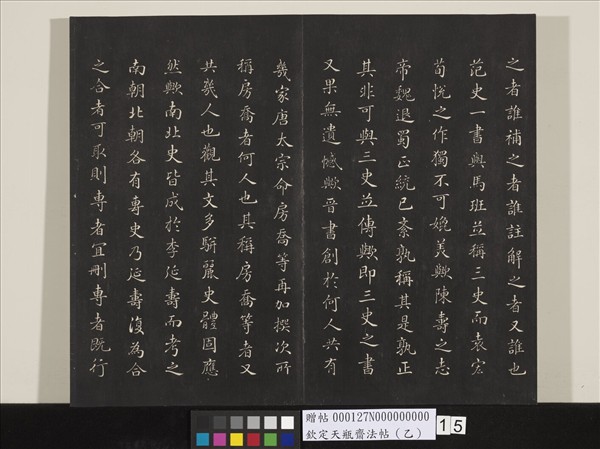 之者誰補之者誰註解之者又誰也
范史一書與馬班並稱三史而袁宏
荀悅之作獨不可媲美歟陳壽之志
帝魏退蜀正統已紊孰稱其是孰正
其非可與三史並傳歟即三史之書
又果無遺憾歟晉書創於何人共有
幾家唐太宗命房喬等再加撰次所
稱房喬者何人也其稱房喬等者又
共幾人也觀其文多駢麗史體固應
然歟南北史皆成於李延壽而考之
南朝北朝各有專史乃延壽復為合
之合者可取則專者宜刪專者既行
贈帖 000127N000000000
欽定天瓶齋法帖（乙）
15